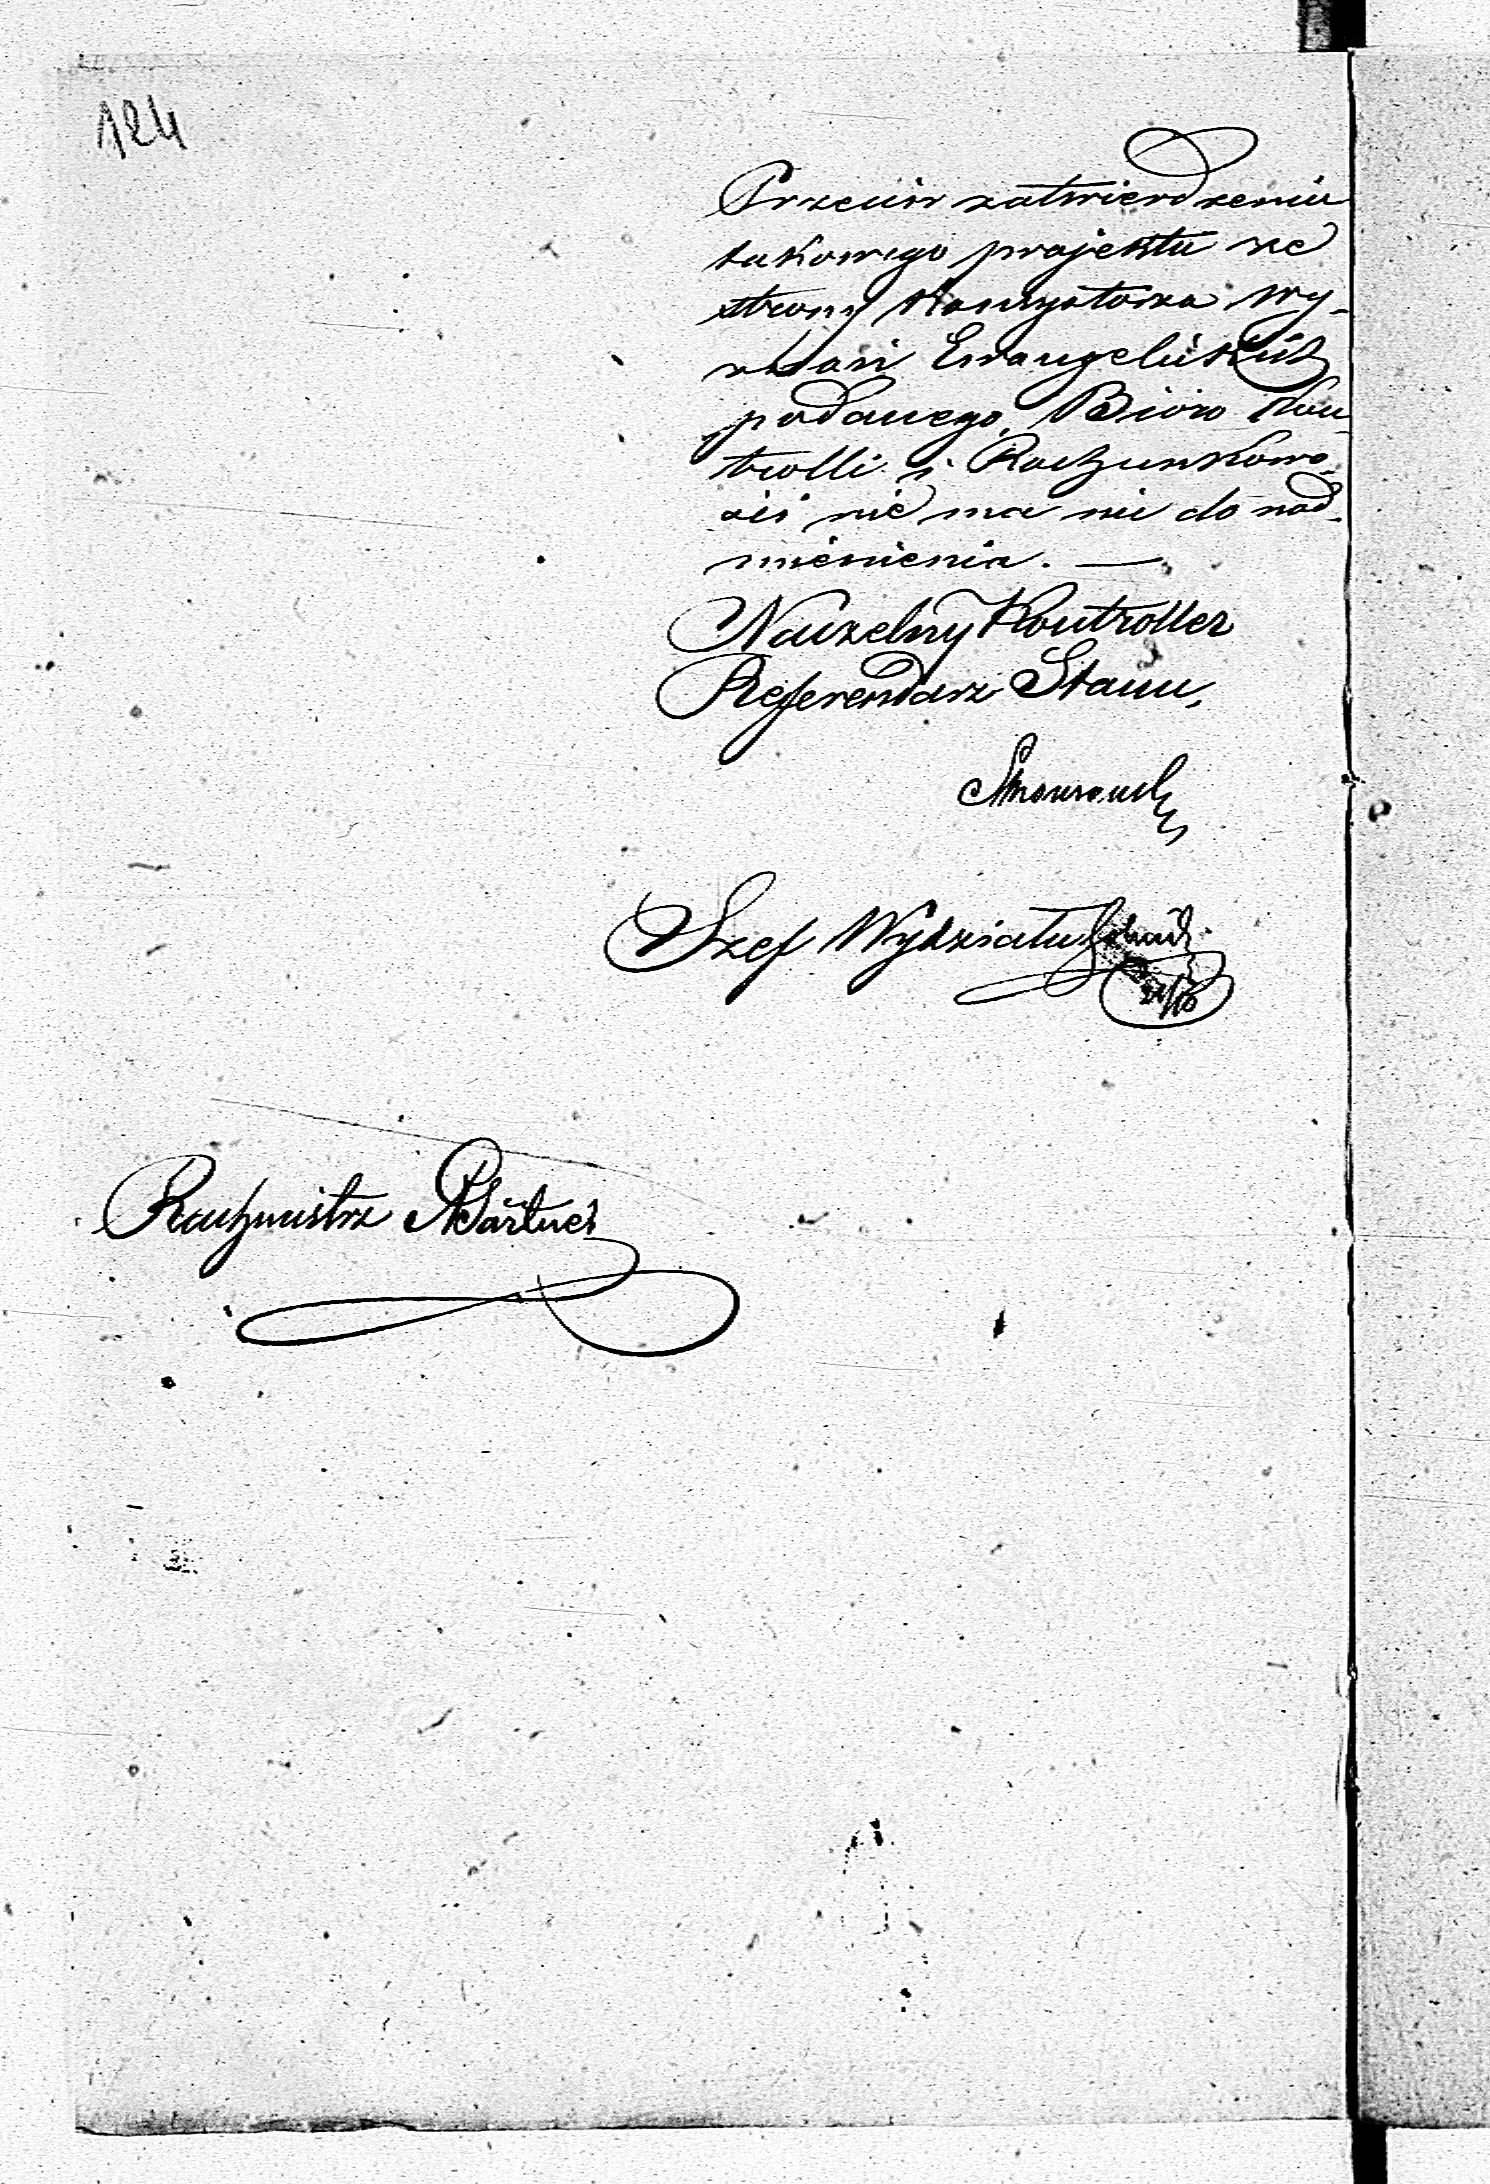 124
Przeciw zatwierdzeniu
takowego projektu ze
strony Konsystorza Wy-
znań Ewangelickich
podanego, Bióro Kon-
trolli i Rachunkowo-
ści nie ma nic do nad-
mienienia. —
Naczelny Kontroller
Referendarz Stanu,
Szef Wydziału
Rachmistrz